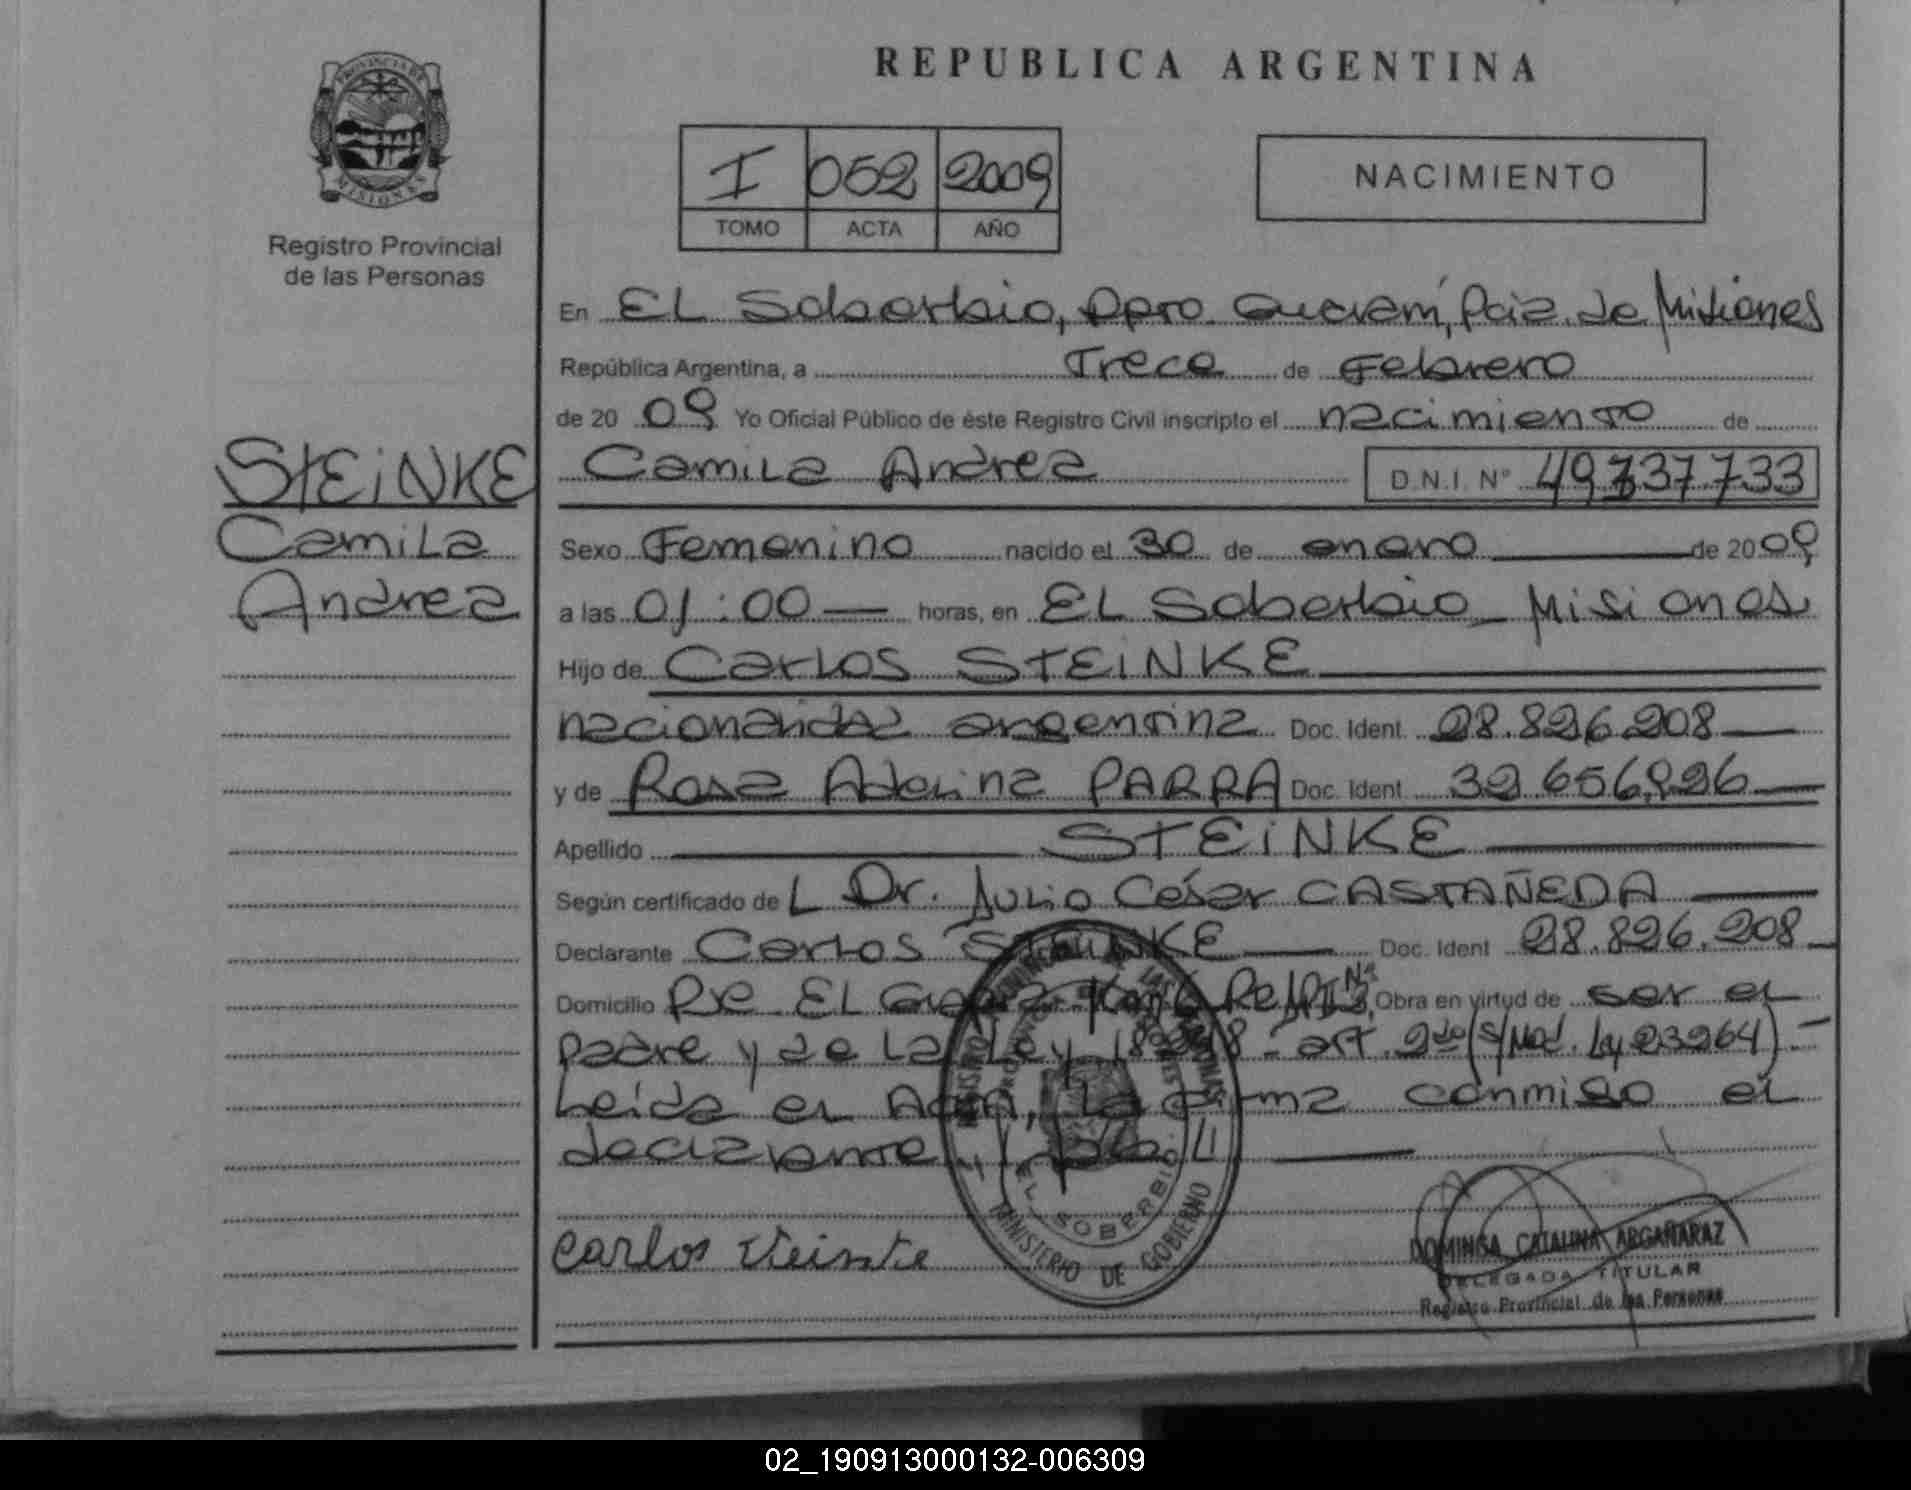 REPUBLICA ARGENTINA
PROVINCIA DE
MISIONES
Registro Provincial
de las Personas
I 052 2009
TOMO ACTA AÑO
NACIMIENTO
En EL Soberbio, Dpto. Guaraní, Pcia. de Misiones
República Argentina, a Trece de Febrero
de 20 09 Yo Oficial Público de éste Registro Civil inscripto el nacimiento de
STEiNKE
Camila
Andrea
Camila Andrea D.N.I. Nº 49737733
Sexo Femenino nacido el 30 de enero de 20 09
a las 01:00 horas, en EL Soberbio - Misiones
Hijo de Carlos STEINKE
nacionalidad argentina Doc. Ident. 28.826.208
y de Rosa Adelina PARRA Doc. Ident. 32.656.826
Apellido STEiNKE
Según certificado de L Dr. Julio César CASTAÑEDA
Declarante Carlos STEINKE Doc. Ident 28.826.208
Domicilio Pje. EL Obra en virtud de ser el
padre y de La Ley art. 2do (s/Mod. Ley 23264) -
Leida el Acta, La firma conmigo el
declarante
EL SOBERBIO
MINISTERIO DE GOBIERNO
Carlos Steinke
DOMINGA CATALINA ARGAÑARAZ
DELEGADA TITULAR
Registro Provincial de las Personas
02_190913000132-006309